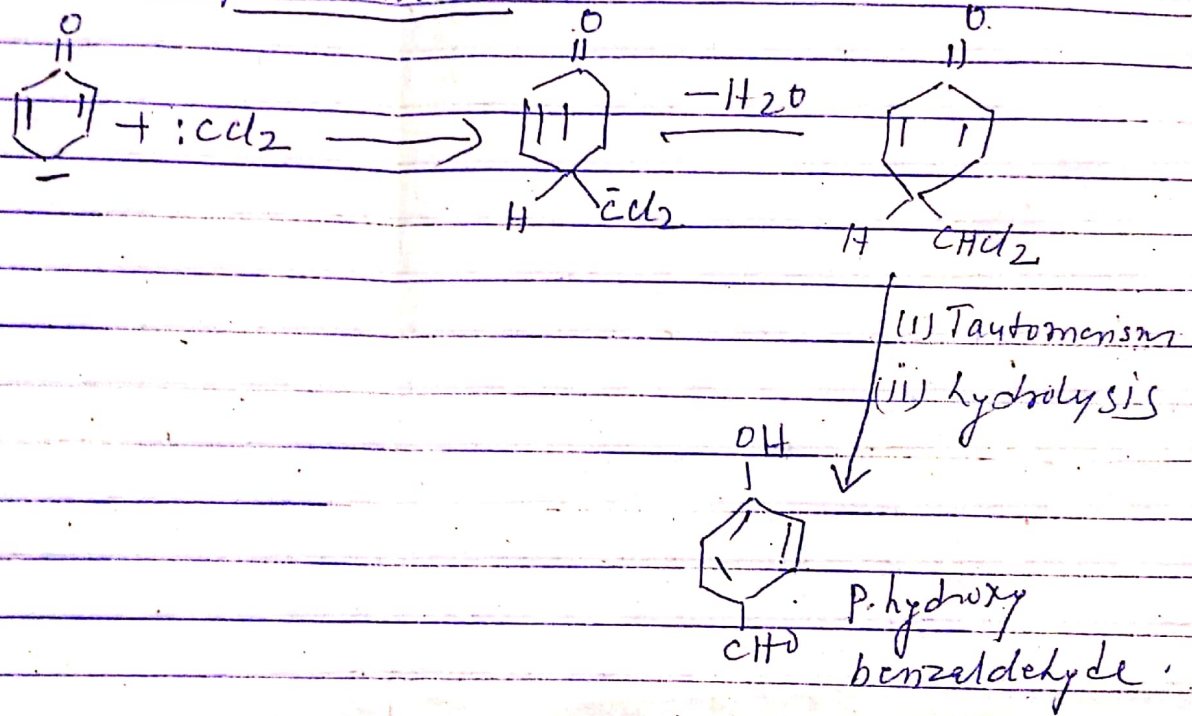 O
O
O.
+ :CCl2
-H2O
H
C̄Cl2
H
CHCl2
(i) Tautomerism
(ii) hydrolysis
OH
CHO
p. hydroxy
benzaldehyde.